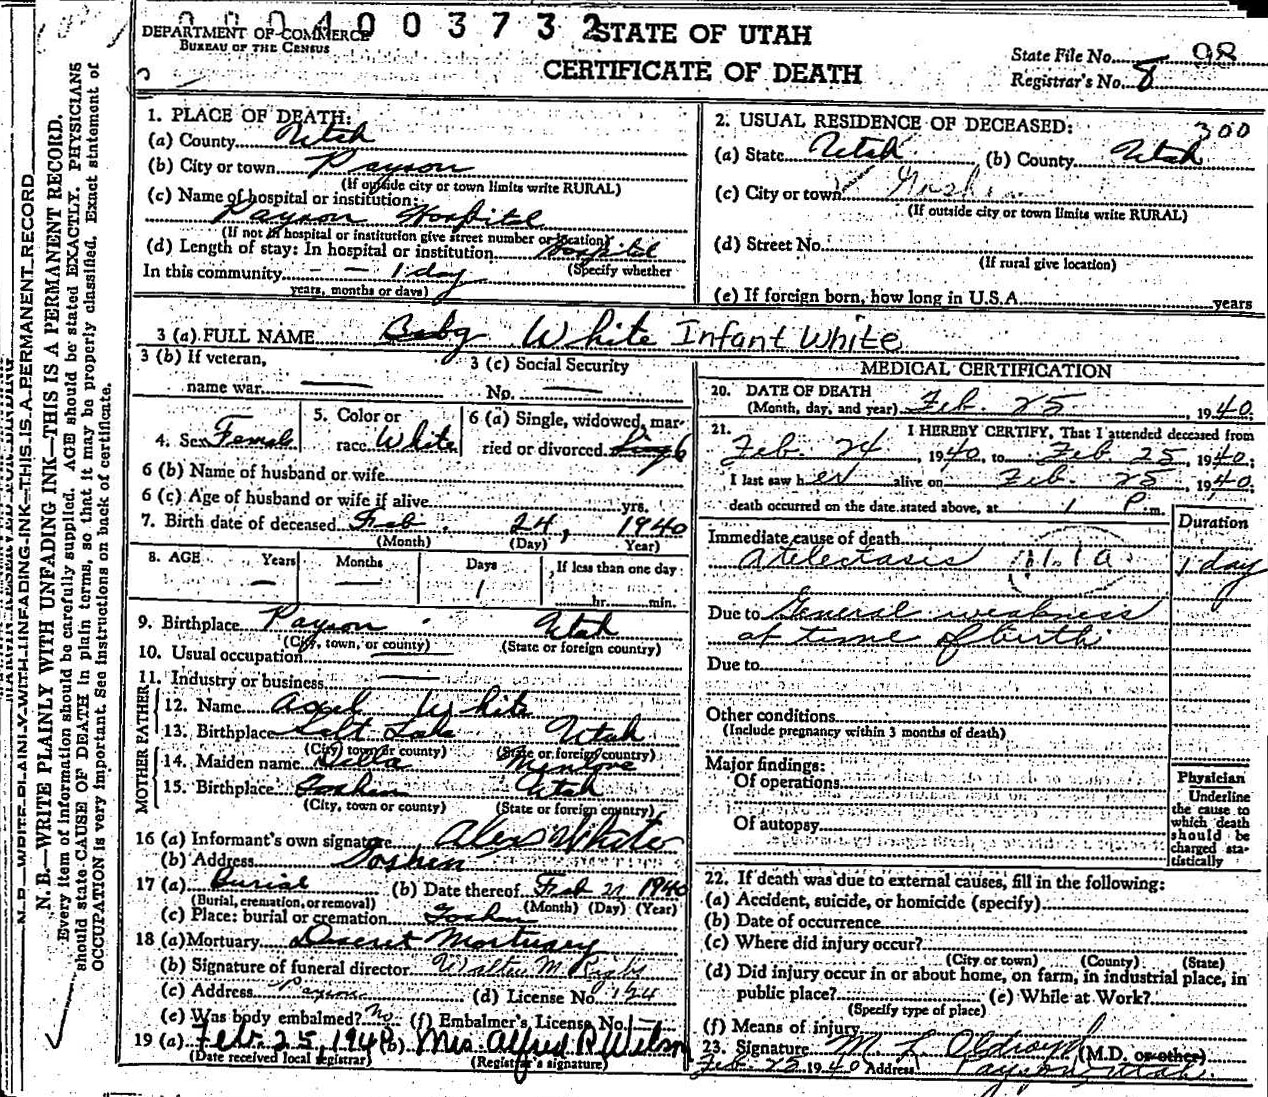 0004003732
DEPARTMENT OF COMMERCE
BUREAU OF THE CENSUS
STATE OF UTAH
CERTIFICATE OF DEATH
State File No. 98
Registrar's No. 8
N. B.—WRITE PLAINLY WITH UNFADING INK—THIS IS A PERMANENT RECORD
N. B.—WRITE PLAINLY WITH UNFADING INK—THIS IS A PERMANENT RECORD.
Every item of information should be carefully supplied. AGE should be stated EXACTLY. PHYSICIANS
should state CAUSE OF DEATH in plain terms, so that it may be properly classified. Exact statement of
OCCUPATION is very important. See instructions on back of certificate.
1. PLACE OF DEATH:
(a) County Utah
(b) City or town Payson
(If outside city or town limits write RURAL)
(c) Name of hospital or institution:
Payson Hospital
(If not in hospital or institution give street number or location)
(d) Length of stay: In hospital or institution Hospital
(Specify whether
In this community — — 1 day
years, months or days)
2. USUAL RESIDENCE OF DECEASED: 300
(a) State Utah (b) County Utah
(c) City or town Goshen
(If outside city or town limits write RURAL)
(d) Street No.
(If rural give location)
(e) If foreign born, how long in U.S.A. years
3 (a) FULL NAME Baby White Infant White
3 (b) If veteran,
name war —
3 (c) Social Security
No. —
4. Sex Female
5. Color or
race White
6 (a) Single, widowed, mar-
ried or divorced Single
6 (b) Name of husband or wife
6 (c) Age of husband or wife if alive yrs.
7. Birth date of deceased Feb. 24, 1940
(Month) (Day) Year)
8. AGE Years Months Days If less than one day
— — 1 hr. min.
9. Birthplace Payson Utah
(City, town, or county) (State or foreign country)
10. Usual occupation —
11. Industry or business —
FATHER
12. Name Axel White
13. Birthplace Salt Lake Utah
(City, town or county) (State or foreign country)
MOTHER
14. Maiden name Della Menlove
15. Birthplace Goshen Utah
(City, town or county) (State or foreign country)
16 (a) Informant's own signature Alex White
(b) Address Goshen
17 (a) Burial (b) Date thereof Feb 1940
(Burial, cremation, or removal) (Month) (Day) (Year)
(c) Place: burial or cremation Goshen
18 (a) Mortuary Deseret Mortuary
(b) Signature of funeral director Walter M. Rigby
(c) Address Payson (d) License No. 124
(e) Was body embalmed? No (f) Embalmer's License No. —
19 (a) Feb. 25, 1940 (b) Mrs Alfred R Wilson
(Date received local registrar) (Registrar's signature)
MEDICAL CERTIFICATION
20. DATE OF DEATH
(Month, day, and year) Feb. 25, 1940.
21. I HEREBY CERTIFY, That I attended deceased from
Feb. 24, 1940, to Feb 25, 1940;
I last saw her alive on Feb. 25, 1940,
death occurred on the date stated above, at 1 P.m.
Duration
Immediate cause of death
Atelectasis 1 day
Due to General weakness
at time of birth
Due to
Other conditions
(Include pregnancy within 3 months of death)
Major findings:
Of operations
Of autopsy
Physician
Underline
the cause to
which death
should be
charged sta-
tistically
22. If death was due to external causes, fill in the following:
(a) Accident, suicide, or homicide (specify)
(b) Date of occurrence
(c) Where did injury occur?
(City or town) (County) (State)
(d) Did injury occur in or about home, on farm, in industrial place, in
public place? (e) While at Work?
(Specify type of place)
(f) Means of injury
23. Signature M. L. Oldroyd (M.D. or other)
Feb. 25 1940 Address Payson, Utah.